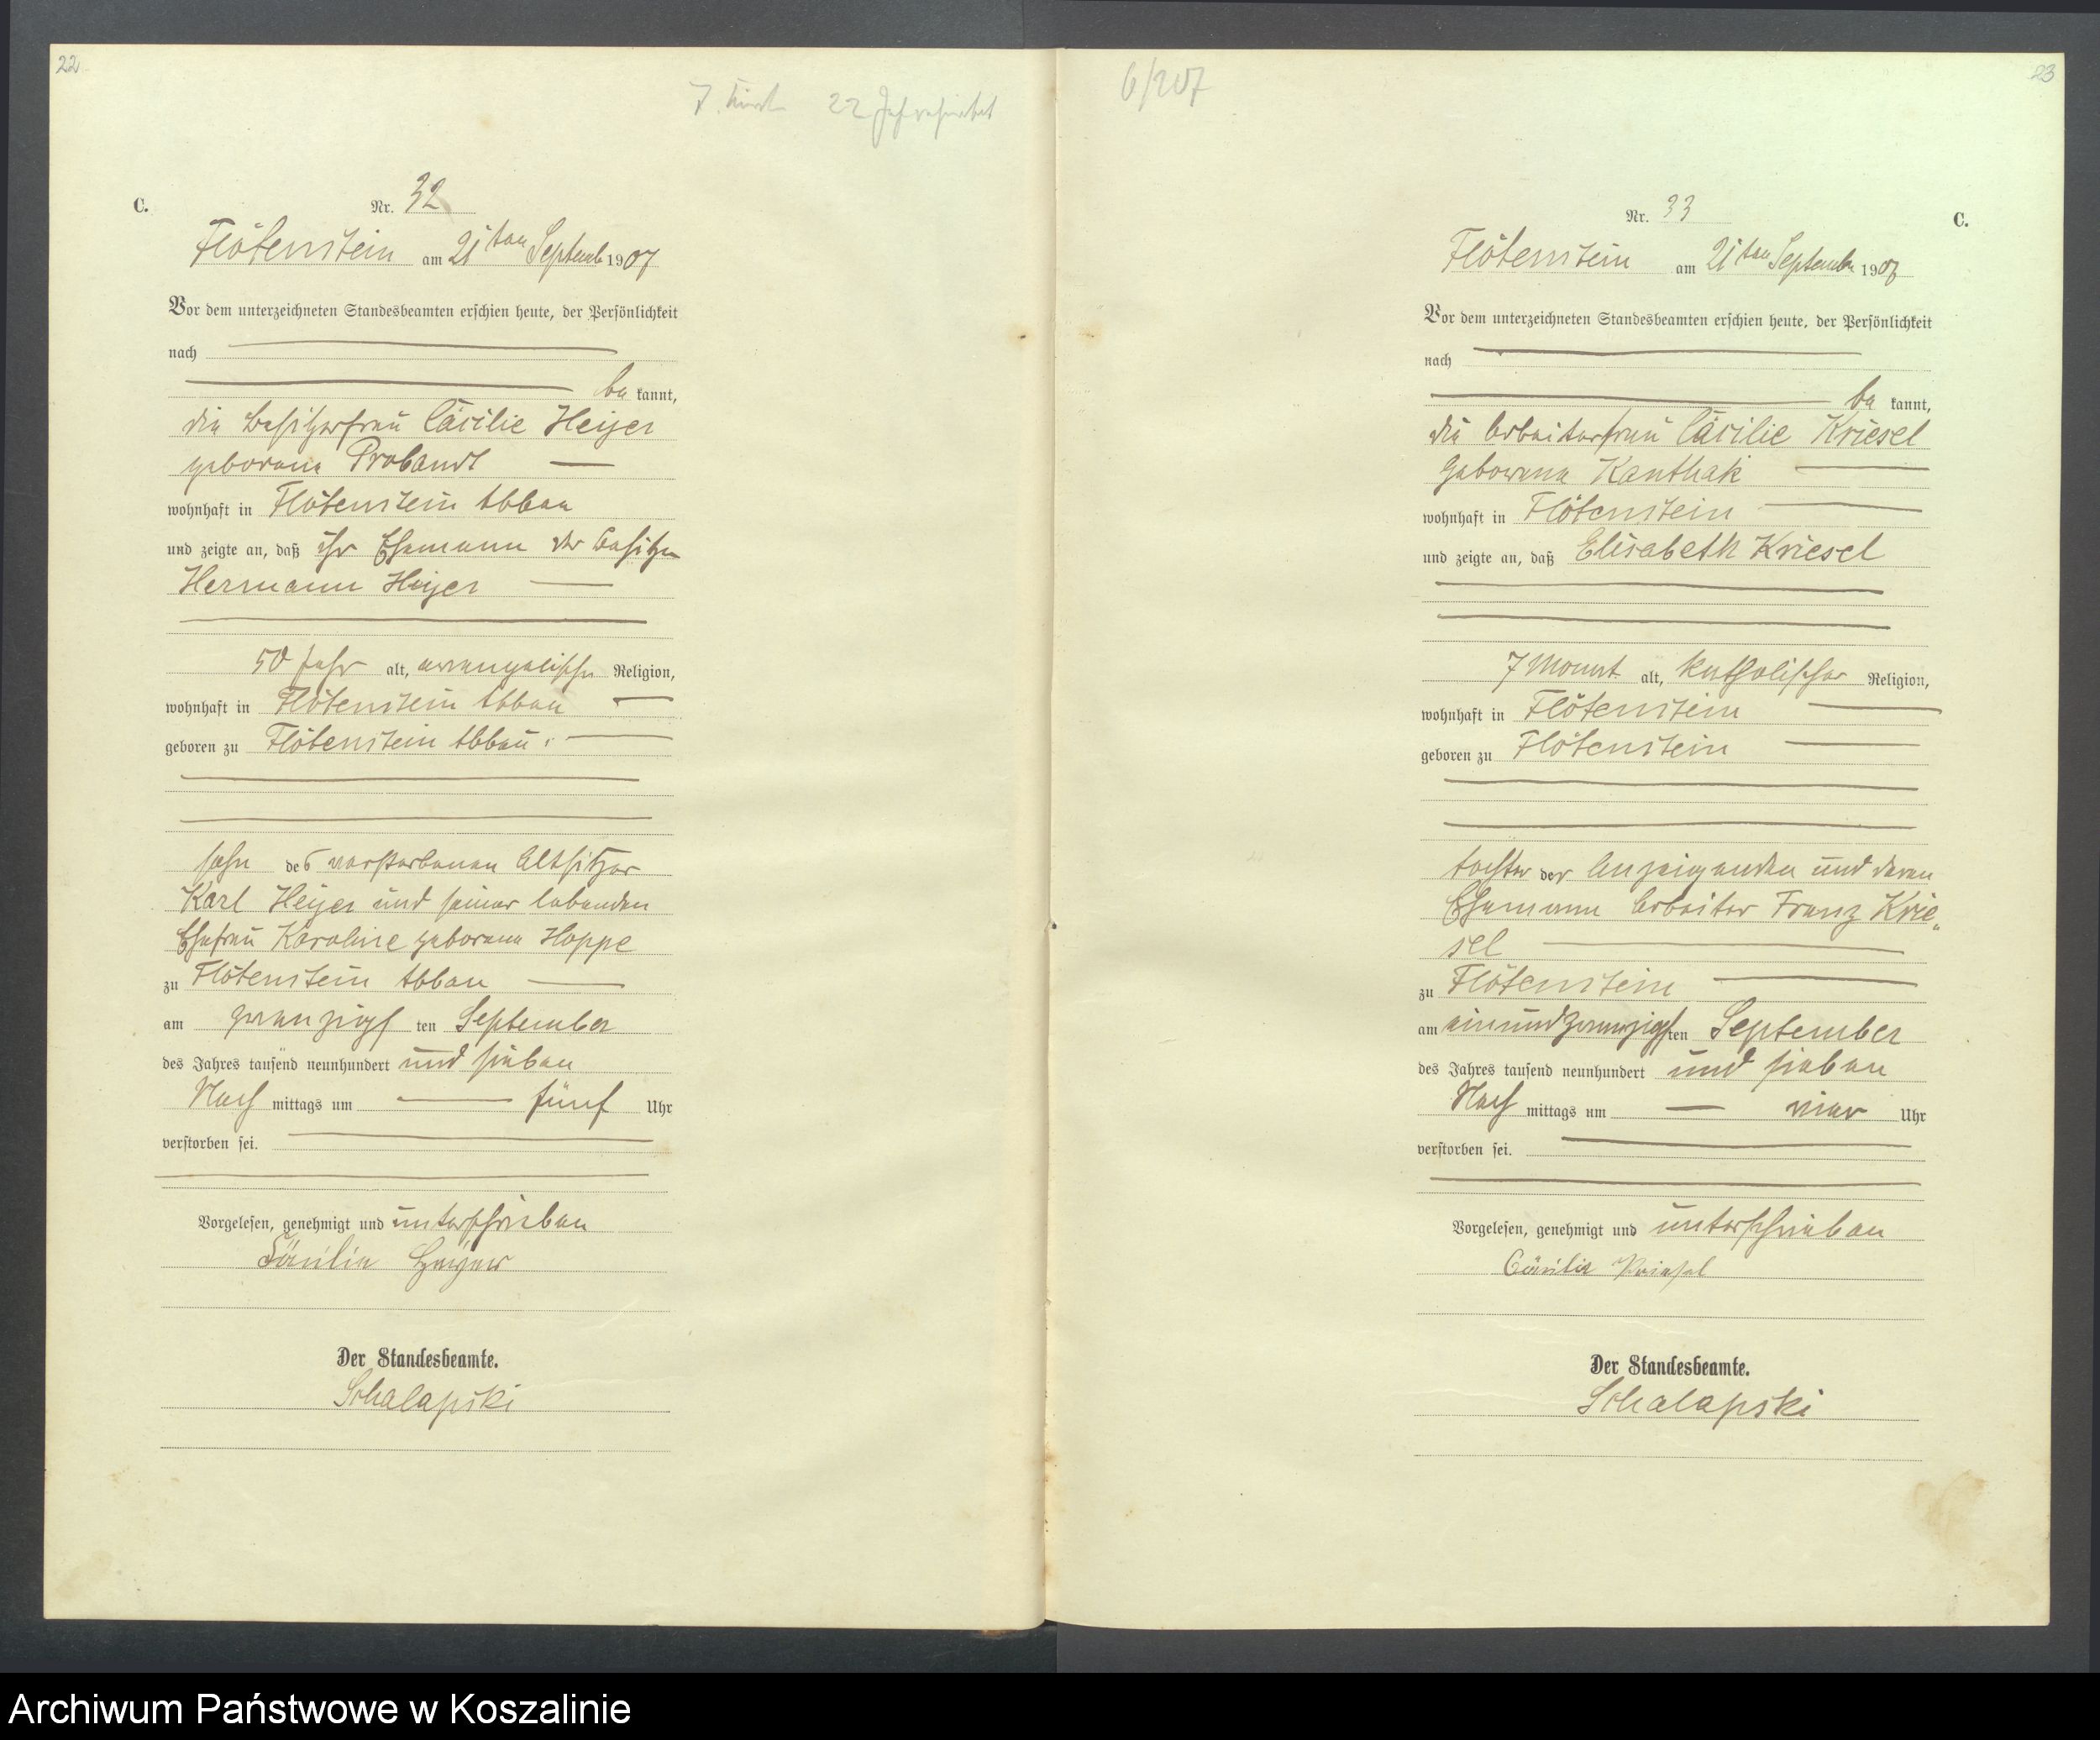 22
7. Kind 22 Jahr
C.
Nr. 32
Flötenstein am 21ten Septemb 1907
Vor dem unterzeichneten Standesbeamten erschien heute, der Persönlichkeit
nach
be kannt,
die Besitzerfrau Cäcilie Heyer
geborene Probandt
wohnhaft in Flötenstein Abbau
und zeigte an, daß ihr Ehemann der Besitzer
Hermann Heyer
50 Jahr alt, evangelischer Religion,
wohnhaft in Flötenstein Abbau
geboren zu Flötenstein Abbau,
sohn des verstorbenen Altsitzer
Karl Heyer und seiner lebenden
Ehefrau Karoline geborene Hoppe
zu Flötenstein Abbau
am zwanzigs ten September
des Jahres tausend neunhundert und sieben
Nach mittags um fünf Uhr
verstorben sei.
Vorgelesen, genehmigt und unterschrieben
Cäcilie Heyer
Der Standesbeamte.
Schalapski
6/207
23
Nr. 33
C.
Flötenstein am 21ten September 1907
Vor dem unterzeichneten Standesbeamten erschien heute, der Persönlichkeit
nach
be kannt,
die Arbeiterfrau Cäcilie Kriesel
geborene Kanthak
wohnhaft in Flötenstein
und zeigte an, daß Elisabeth Kriesel
7 Monat alt, katholischer Religion,
wohnhaft in Flötenstein
geboren zu Flötenstein
tochter der Anzeigenden und deren
Ehemann Arbeiter Franz Krie„
sel
zu Flötenstein
am einundzwanzigsten September
des Jahres tausend neunhundert und sieben
Nach mittags um vier Uhr
verstorben sei.
Vorgelesen, genehmigt und unterschrieben
Cäcilie Kriesel
Der Standesbeamte.
Schalapski
Archiwum Państwowe w Koszalinie